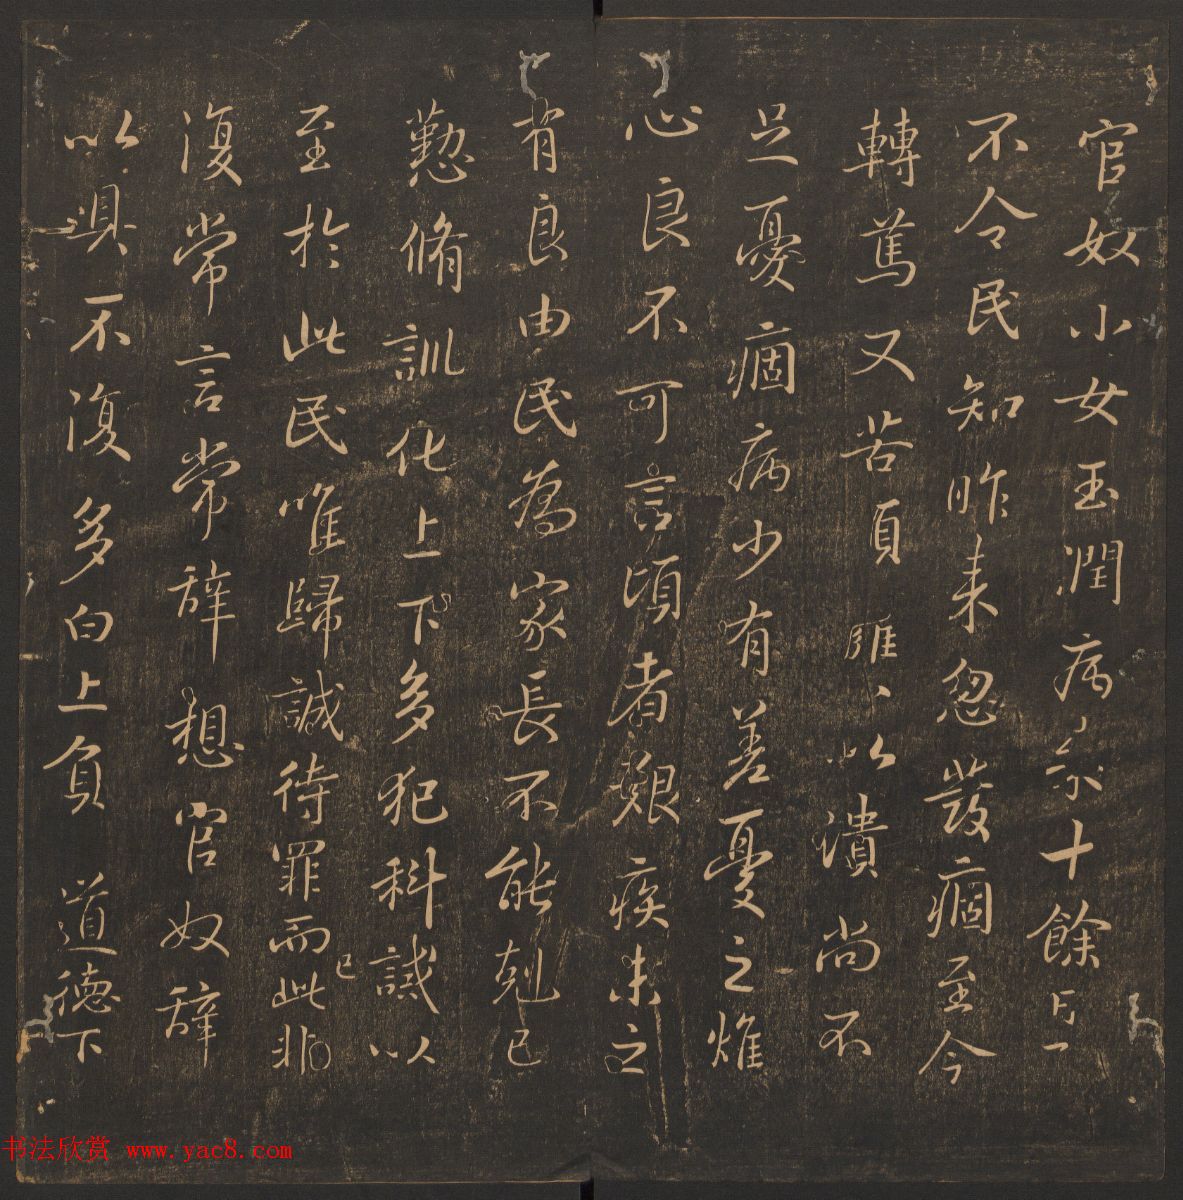 官奴小女玉潤病來十餘日
不令民知昨來忽發痼至今
轉篤又苦頭癰癰以潰尚不
足憂痼病少有差憂之燋
心良不可言頃者艱疾未之
有良由民為家長不能剋己
懃脩訓化上下多犯科誡以
至於此民唯歸誠待罪而此非
復常言常辭想官奴辭
以具不復多白上負道德下
已
书法欣赏 www.yac8.com